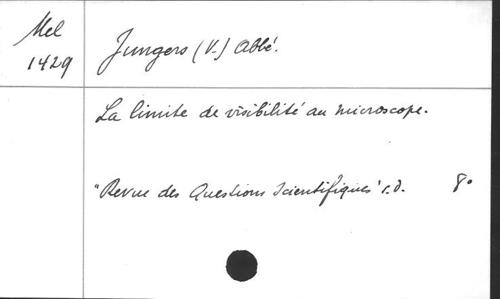 Mel
1429
Jungers (V.) Abbé.
La limite de visibilité au microscope.
"Revue des Questions Scientifiques" s.d. 8°